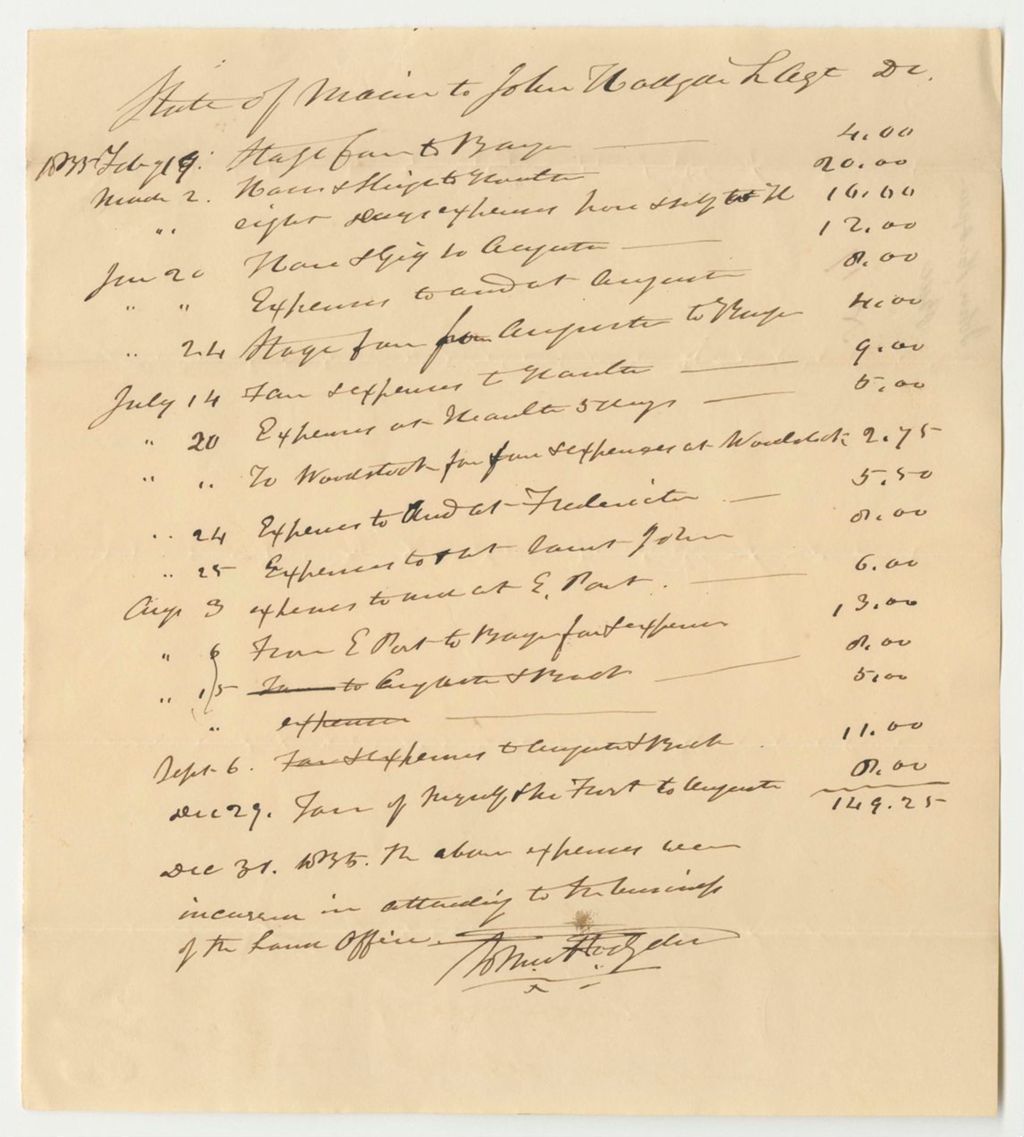 State of Maine to John Hodgdon L Agt Dr.
1835 Feby 19. Stage fare to Bangor 4.00
March 2. Horse & Sleigh to Houlton 20.00
" eight days expenses horse & self to H 16.00
Jun 20 Horse & Gig to Augusta 12.00
" " Expenses to and at Augusta 8.00
" 24 Stage fare from Augusta to Bangor 4.00
July 14 Fare & expenses to Houlton 9.00
" 20 Expenses at Houlton 5 days 5.00
" " To Woodstock for fare & expenses at Woodstock 2.75
" 24 Expenses to and at Fredericton 5.50
" 25 Expenses to & at Saint John 8.00
Aug 3 expenses to and at E. Port. 6.00
" 6 From E Port to Bangor fare & expenses 13.00
" 15 Fare to Augusta & Back 8.00
" expenses 5.00
Sept 6. Fare & Expenses to Augusta & Back 11.00
Dec 29. Fare of Myself & to Augusta 8.00
149.25
Dec 31. 1835. The above expenses were
incurred in attending to the business
of the Land Office. John Hodgdon